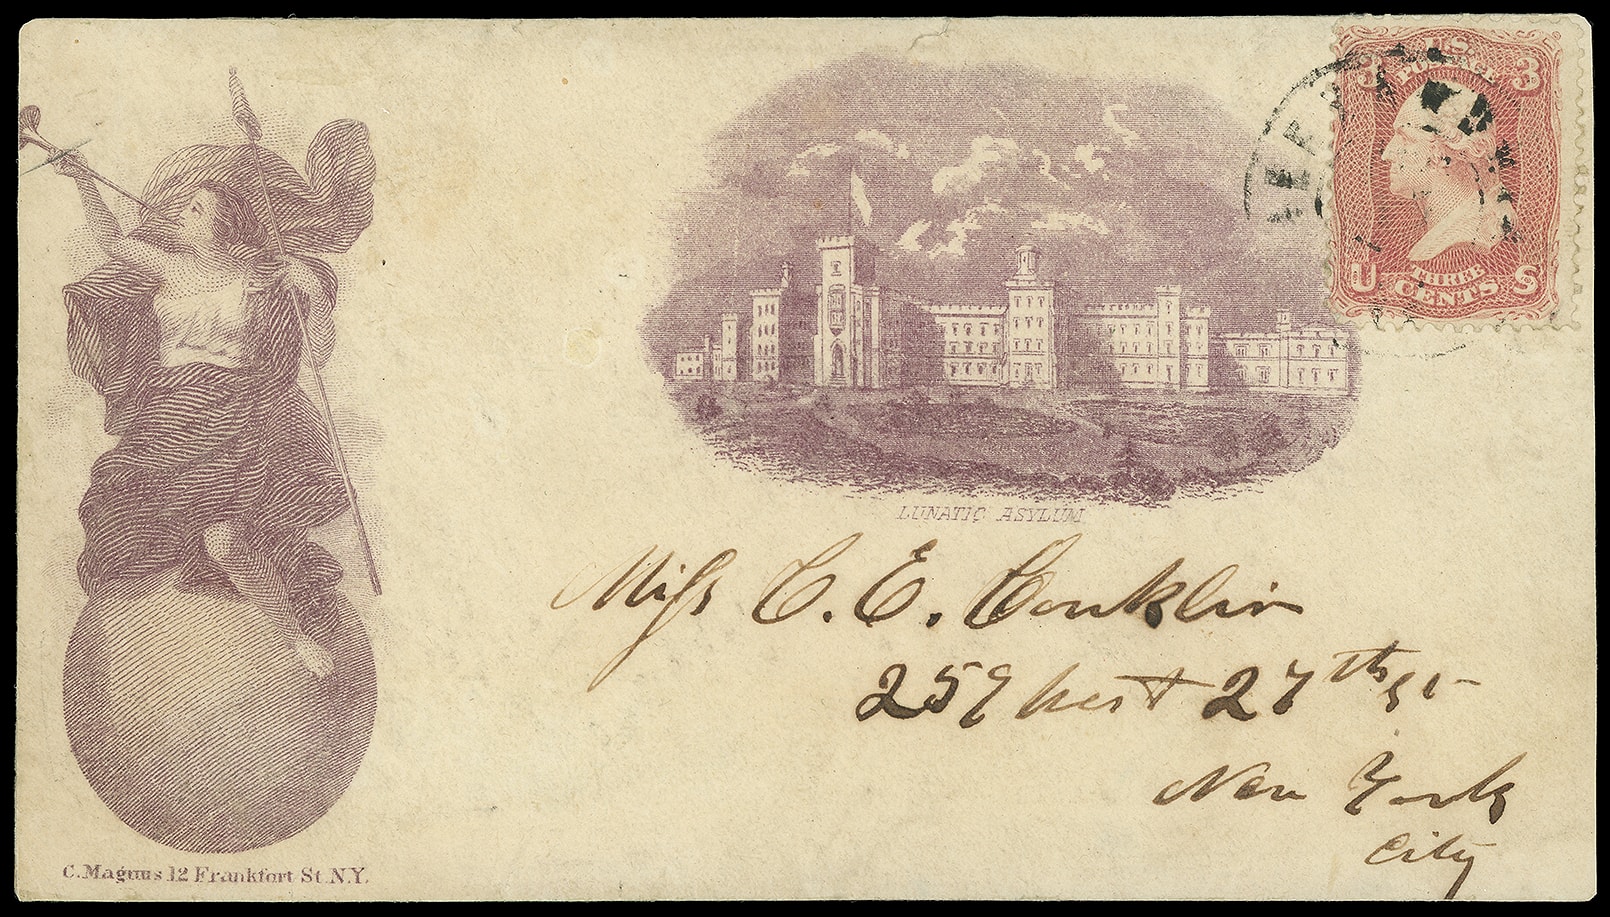 3 U.S. 3
POSTAGE
U THREE S
CENTS
LUNATIC ASYLUM
Miss C. E. Conklin
259 West 27th St
New York
City
C. Magnus 12 Frankfort St N.Y.